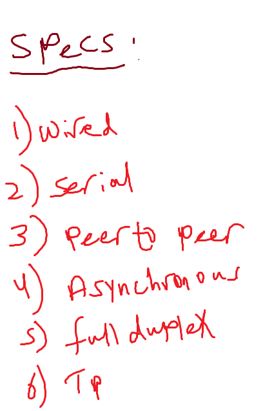 Specs:
1) wired
2) serial
3) Peer to peer
4) Asynchronous
5) full duplex
6) Tp